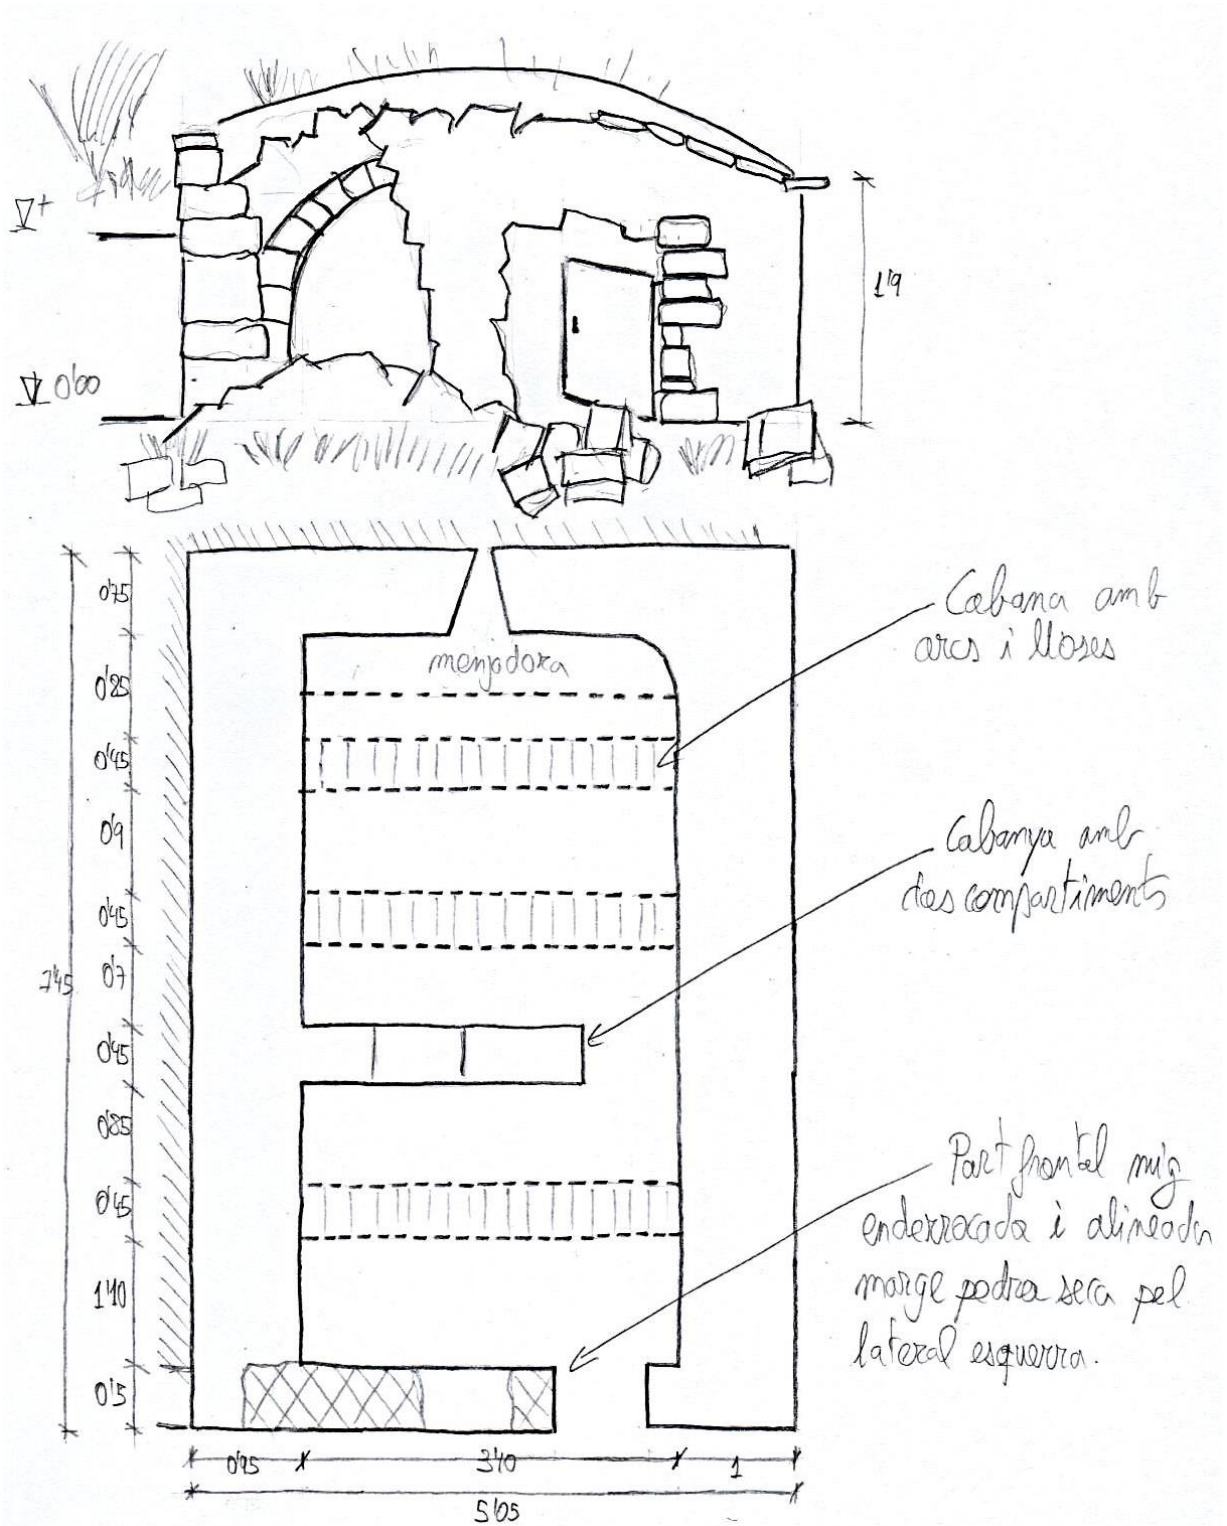 +
0'00
1'9
0'75
0'85
0'45
0'9
0'45
0'7
0'45
0'85
0'45
1'10
0'5
7'45
menjadora
Cabana amb
arcs i lloses
Cabanya amb
dos compartiments
Part frontal mig
enderrocada i alineada
marge pedra seca pel
lateral esquerra.
0'95
3'10
1
5'05